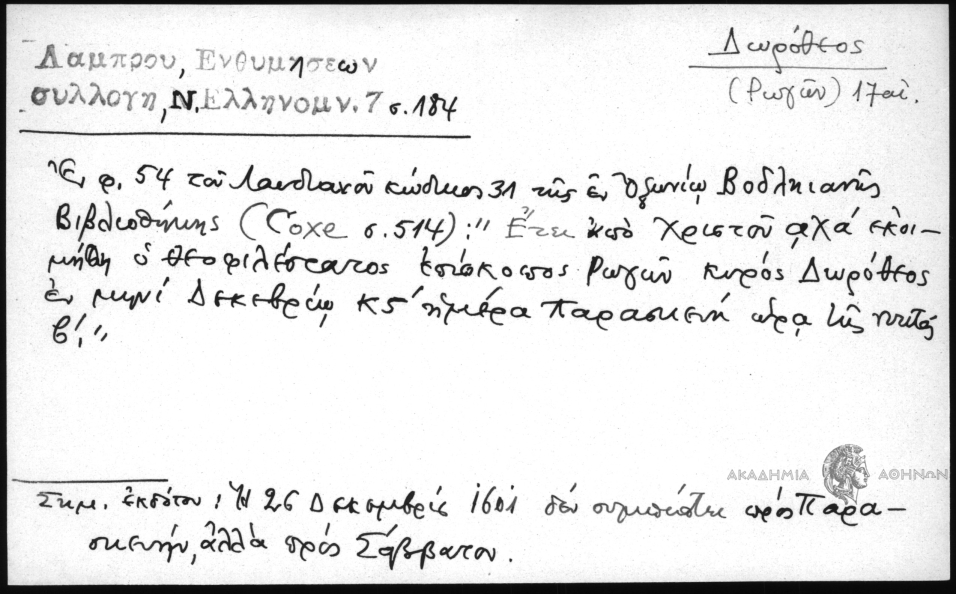 Λαμπρου, Ενθυμησεων
συλλογη, Ν. Ελληνομν. 7 σ. 184
Δωρόθεος
(Ρωγῶν) 17 αἰ.
Ἐν φ. 54 τοῦ Λαυδιακοῦ κώδικος 31 τῆς ἐν Ὀξωνίῳ Βοδληιανῆς
Βιβλιοθήκης (Coxe σ. 514): "Ἔτει ἀπὸ Χριστοῦ αχά ἐκοι-
μήθη ὁ θεοφιλέστατος ἐπίσκοπος Ρωγῶν κυρός Δωρόθεος
ἐν μηνί Δεκεβρίῳ κς' ἡμέρα Παρασκευή ὥρᾳ τῆς νυκτός
β'."
ΑΚΑΔΗΜΙΑ ΑΘΗΝΩΝ
Σημ. ἐκδότου: Ἡ 26 Δεκεμβρίς 1601 δέν συμπίπτει πρός Παρα-
σκευήν, ἀλλὰ πρός Σάββατον.